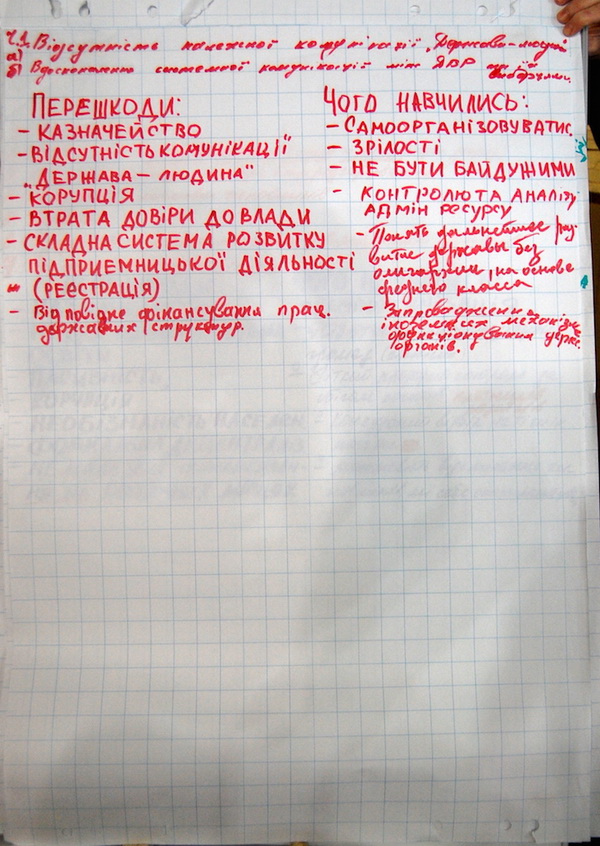 Ч.1. Відсутність належної комунікації „Держава-людина"
а)
б) Вдосконалення системної комунікації між ЯВР та її виборцями.
ПЕРЕШКОДИ:
- КАЗНАЧЕЙСТВО
- ВІДСУТНІСТЬ КОМУНІКАЦІЇ
„ДЕРЖАВА – ЛЮДИНА"
- КОРУПЦІЯ
- ВТРАТА ДОВІРИ ДО ВЛАДИ
- СКЛАДНА СИСТЕМА РОЗВИТКУ
ПІДПРИЄМНИЦЬКОЇ ДІЯЛЬНОСТІ
(РЕЄСТРАЦІЯ)
- Відповідне фінансування прац.
державних структур.
ЧОГО НАВЧИЛИСЬ:
- САМООРГАНІЗОВУВАТИС
- ЗРІЛОСТІ
- НЕ БУТИ БАЙДУЖИМИ
- КОНТРОЛЮ ТА АНАЛІЗУ
АДМІН РЕСУРСУ
- Понять дальнейшее раз
витие державы без
олигархии, на основе
среднего класса
- Запровадження
іноземних механізмів
функціонування держ.
органів.